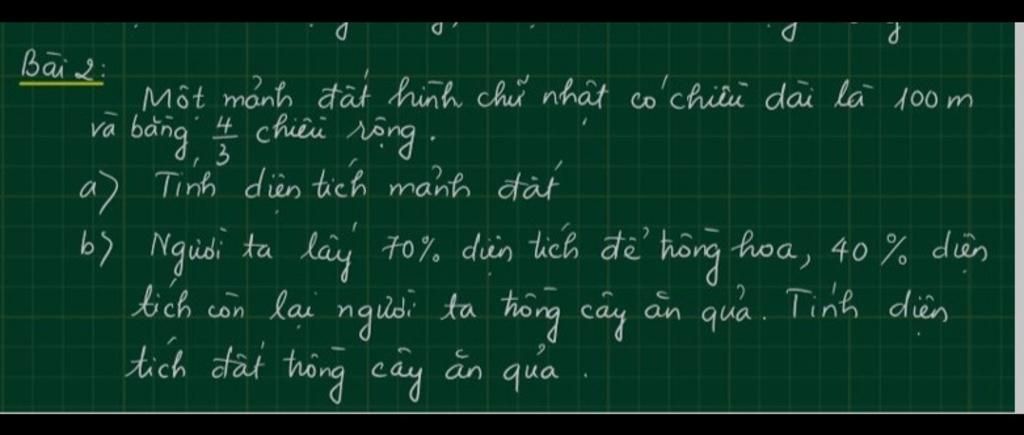 Bài 2:
Một mảnh đất hình chữ nhật có chiều dài là 100 m
và bằng 4/3 chiều rộng.
a) Tính diện tích mảnh đất
b) Người ta lấy 70% diện tích để trồng hoa, 40 % diện
tích còn lại người ta trồng cây ăn quả. Tính diện
tích đất trồng cây ăn quả.